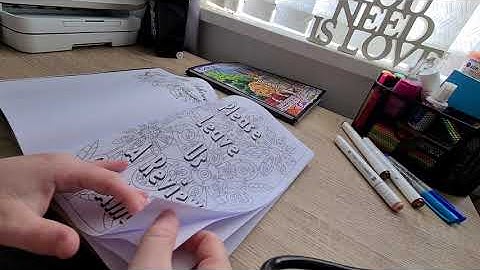 NEED
IS LOVE
Please
Leave
Us
A Review